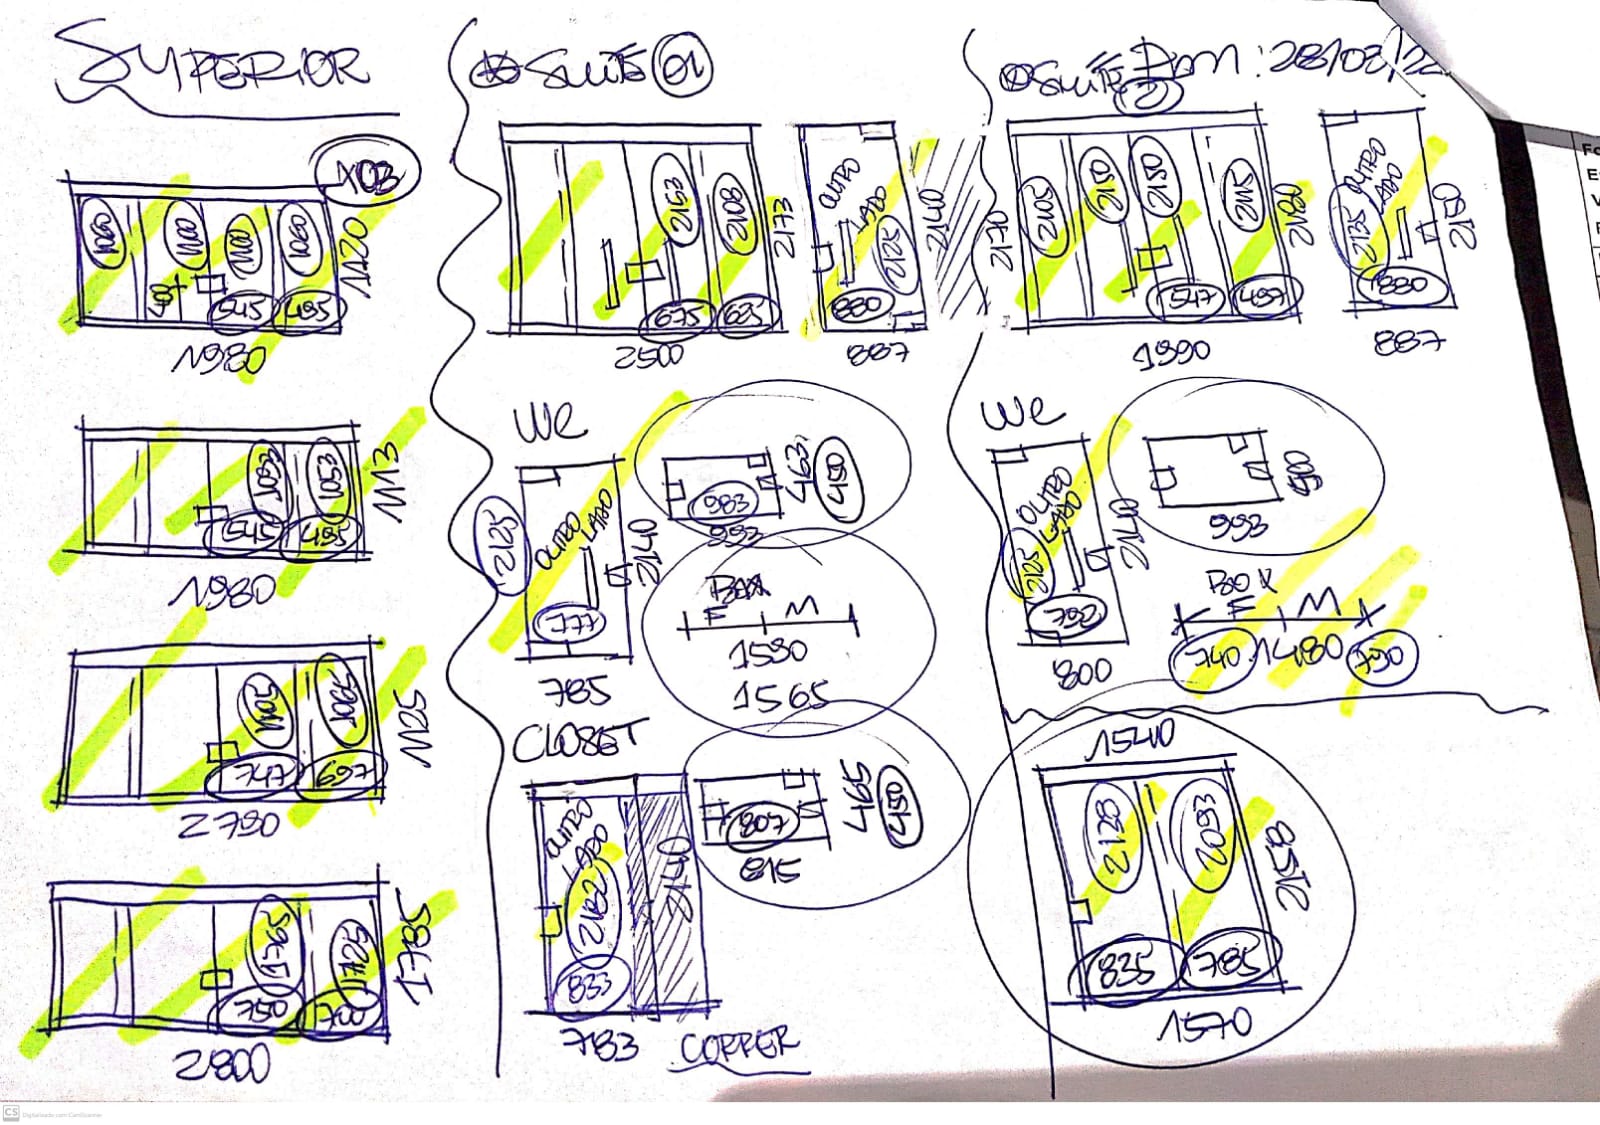 SUPERIOR
X03
1060
1100
1100
1060
1120
545
495
1980
1093
1053
1113
545
495
1980
1105
1065
1125
747
697
2790
1765
1725
1785
750
700
2800
SUITE 01
2163
2103
2173
675
625
2500
OUTRO
LADO
2125
2140
880
887
WC
2125
OUTRO
LADO
2140
777
785
983
463
450
993
BOX
F M
1590
1565
CLOSET
OUTRO
LADO
2140
833
783
CORRER
807
465
450
815
SUITE 02
Dom: 28/08/22
2170
2105
2150
2150
2115
2180
547
497
1990
OUTRO
LADO
2135
2150
880
887
WC
OUTRO
LADO
2125
2140
792
800
500
993
BOX
F M
740
1480
790
1540
2138
2093
2158
835
785
1570
CS Digitalizado com CamScanner